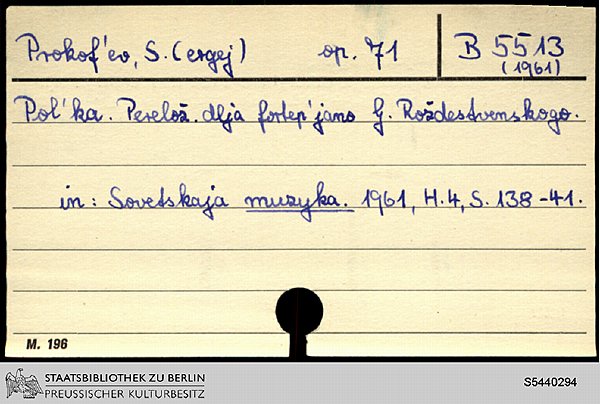 Prokof'ev, S.(ergej) op. 71 B 5513
(1961)
Pol'ka. Perelož. dlja fortep'jano G. Roždestvenskogo.
in: Sovetskaja muzyka. 1961, H.4, S. 138-41.
M. 196
STAATSBIBLIOTHEK ZU BERLIN
PREUSSISCHER KULTURBESITZ
S5440294